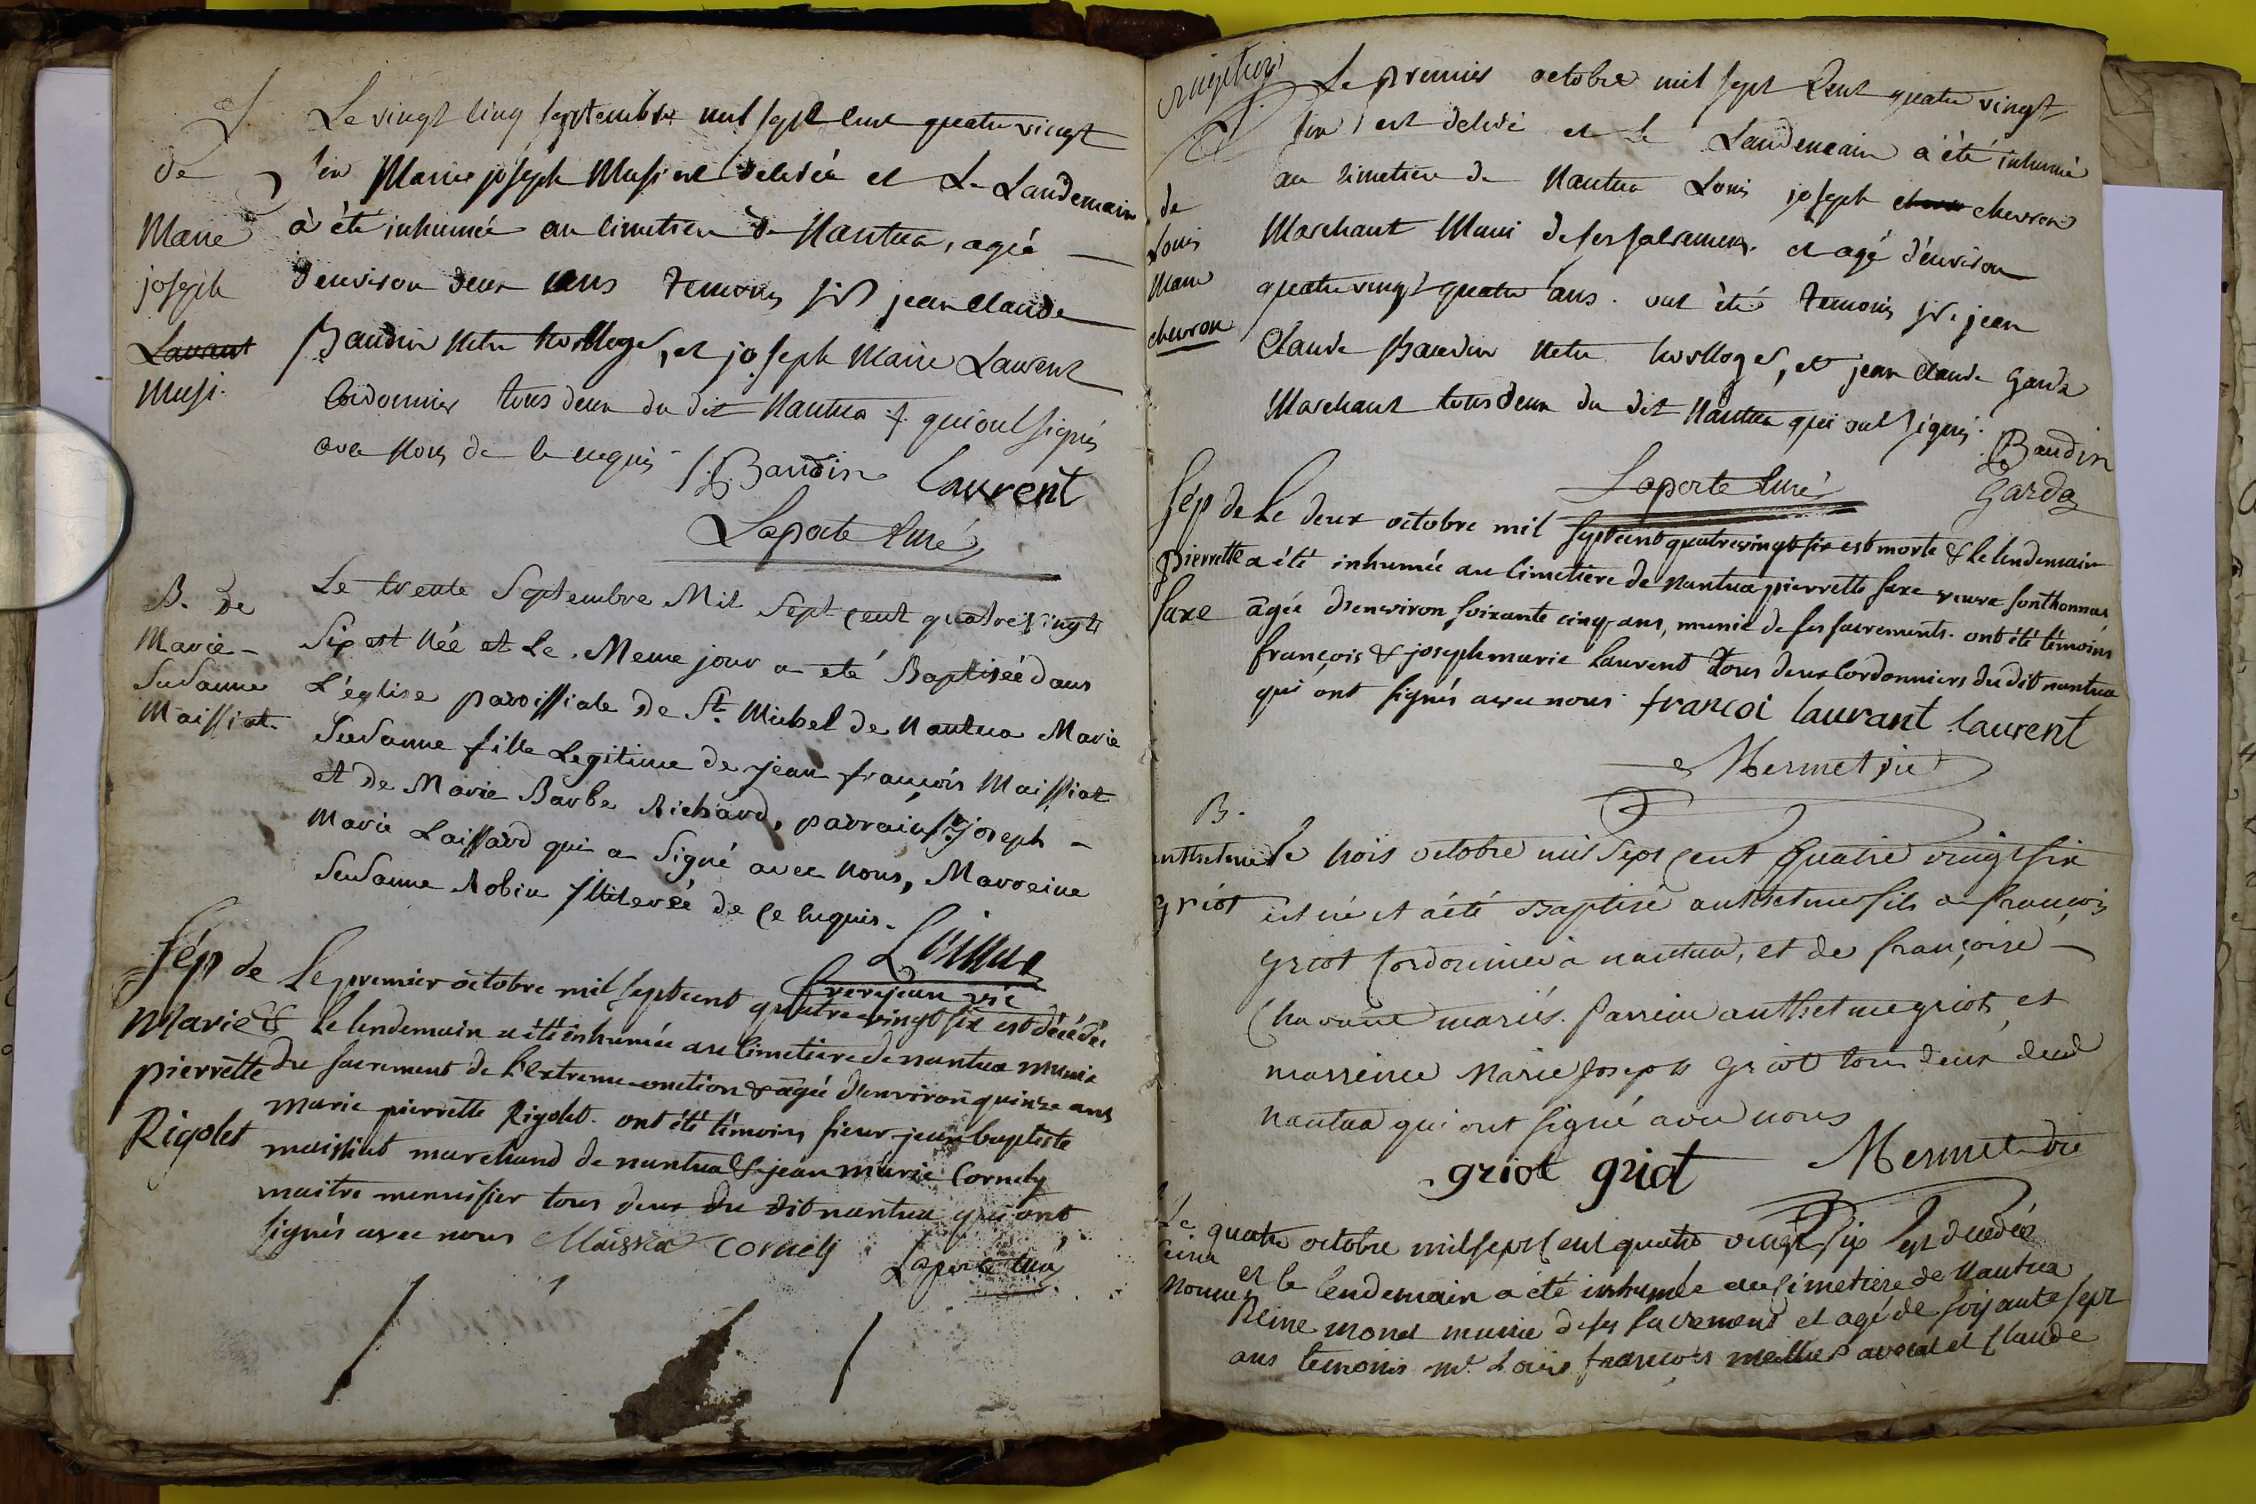 S.
de
Marie
joseph
Laurent
Musi.
Le vingt cinq septembre mil sept cent quatre vingt
six Marie joseph Musi est decedée et Le Landemain
à été inhumée au cimetiere de Nantua, agée
d'environ deux ans temoins sr jean claude
Baudin Mtre horlloger, et joseph Marie Laurent
Cordonnier tous deux du dit Nantua qui ont signés
avec Nous de ce enquis
Baudin Laurent
Laporte Curé
B. De
Marie
Susanne
Maissiat
Le trente Septembre Mil Sept cent quatre vingt
Six est Née et Le Meme jour a été Baptisée dans
L'église paroissiale de St. Michel de Nantua Marie
Susanne fille Legitime de jean françois Maissiat
et de Marie Barbe Richard, parrain Sr joseph
Marie Laissard qui a Signé avec Nous, Marreine
Susanne Robin illiterée de ce enquis.
frerejean vic
Sép de
Marie
pierrette
Rigolet
Le premier octobre mil sept cent quatre vingt six est décédée
& le lendemain a été inhumée au cimetiere de nantua munie
du sacrement de l'extreme-onction & agée d'environ quinze ans
marie pierrette Rigolet. ont été témoins sieur jean baptiste
maissiat marchand de nantua & jean marie Cornely
maitre menuisier tous deux du dit nantua qui ont
signés avec nous Maissiat Cornely
Laporte curé
S.
de
Louis
Marie
chevron
Le premier octobre mil sept Cent quatre vingt
six est decedé et le Landemain a été inhumé
au cimetiere de Nantua Louis joseph chevron
Marchant Muni de ses sacremens et agé d'environ
quatre vingt quatre ans. ont été temoins sr. jean
Claude Baudin Mtre horlloger, et jean Claude Garda
Marchant tous deux du dit Nantua qui ont signés.
Baudin
Laporte Curé
Garda
Sép de
pierrette
Saxe
Le deux octobre mil sept cent quatre vingt six est morte & le lendemain
a été inhumée au cimetiere de nantua pierrette saxe veuve sonthonnax
âgée d'environ soixante cinq ans, munie de ses sacrements. ont été témoins
françois & joseph marie laurent tous deux cordonniers du dit nantua
qui ont signés avec nous francoi laurant laurent
Mermet vic
B.
anthelme
griot
Le trois octobre mil Sept Cent quatre vingt six
est né et a été Baptisé anthelme fils a françois
griot Cordonnier a nantua, et de françoise
Chavanne mariés. Parrein anthelme griot, et
marreine Marie Joseph griot tous deux de
nantua qui ont signé avec nous
griot griot Mermet vic
Le quatre octobre mil sept Cent quatre vingt Six est decedée
et le lendemain a été inhumée au cimetiere de Nantua
Reine monet munie de ses sacrements et agé de soixante sept
ans temoins mr Louis françois meillier avocat et Claude